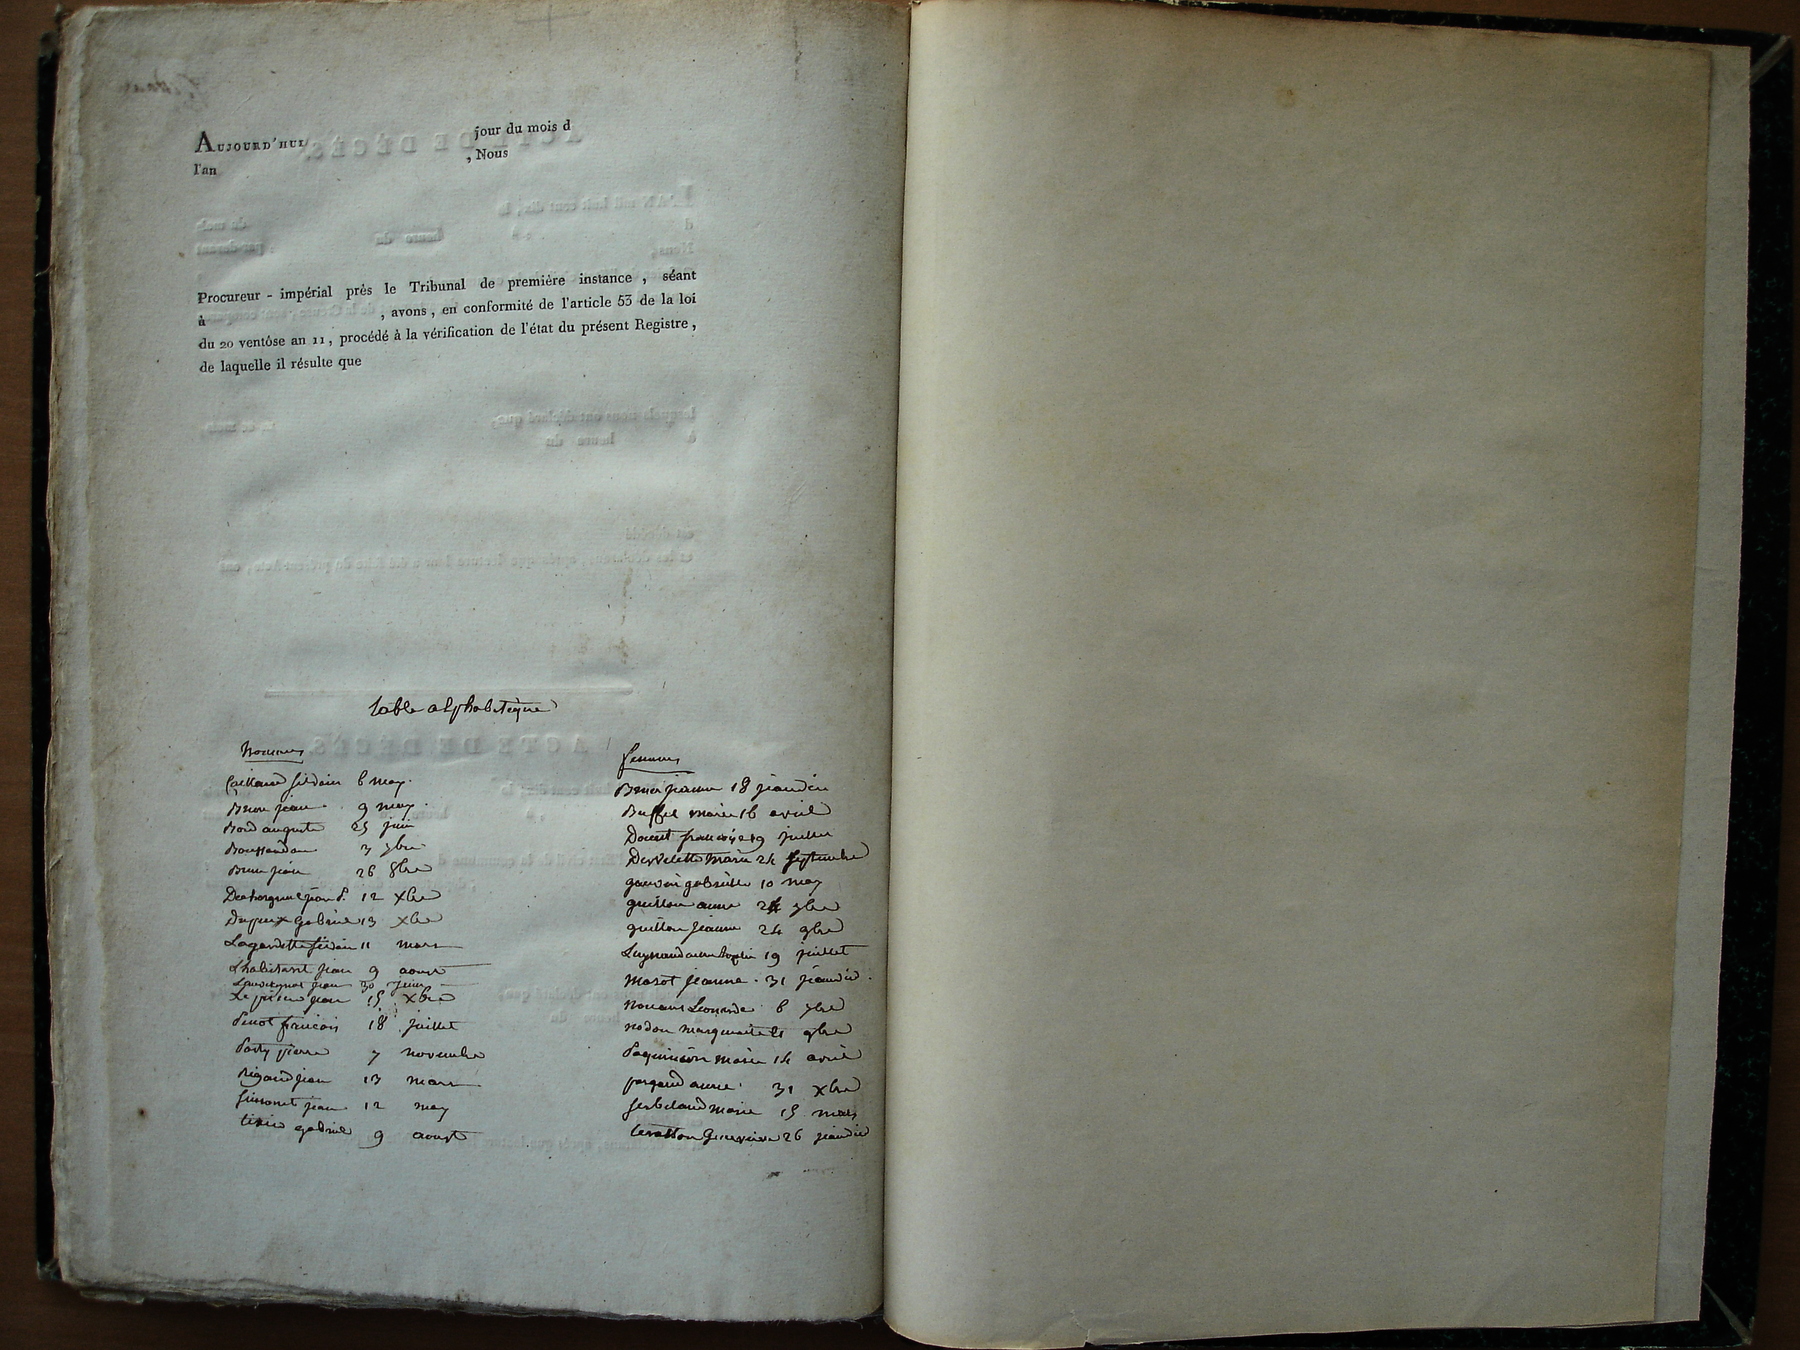 AUJOURD'HUI jour du mois d
l'an , Nous
Procureur - impérial près le Tribunal de première instance , séant
à , avons , en conformité de l'article 53 de la loi
du 20 ventôse an 11 , procédé à la vérification de l'état du présent Registre ,
de laquelle il résulte que
table alphabetique
hommes
silvain 6 may
Brun jean 9 may
Bord auguste 25 juin
3 9bre
Brun jean 26 8bre
jean 12 xbre
Dupeux gabriel 13 xbre
Lagardette silvain 11 mars
Lhabitant jean 9 aoust
jean 30 juin
jean 15 xbre
Pinot francois 18 juillet
Party pierre 7 novembre
Rigaud jean 13 mars
Simonet jean 12 may
gabriel 9 aoust
femmes
jeanne 18 janvier
Buffet marie 16 avril
Doucet francoise 19 juillet
marie 24 septembre
gabrielle 10 may
guitton anne 24 9bre
guitton jeanne 24 9bre
19 juillet
Marot jeanne 31 janvier
Leonarde 6 9bre
nodon marguerite 21 9bre
marie 14 avril
anne 31 xbre
marie 15 mars
Genevieve 26 janvier